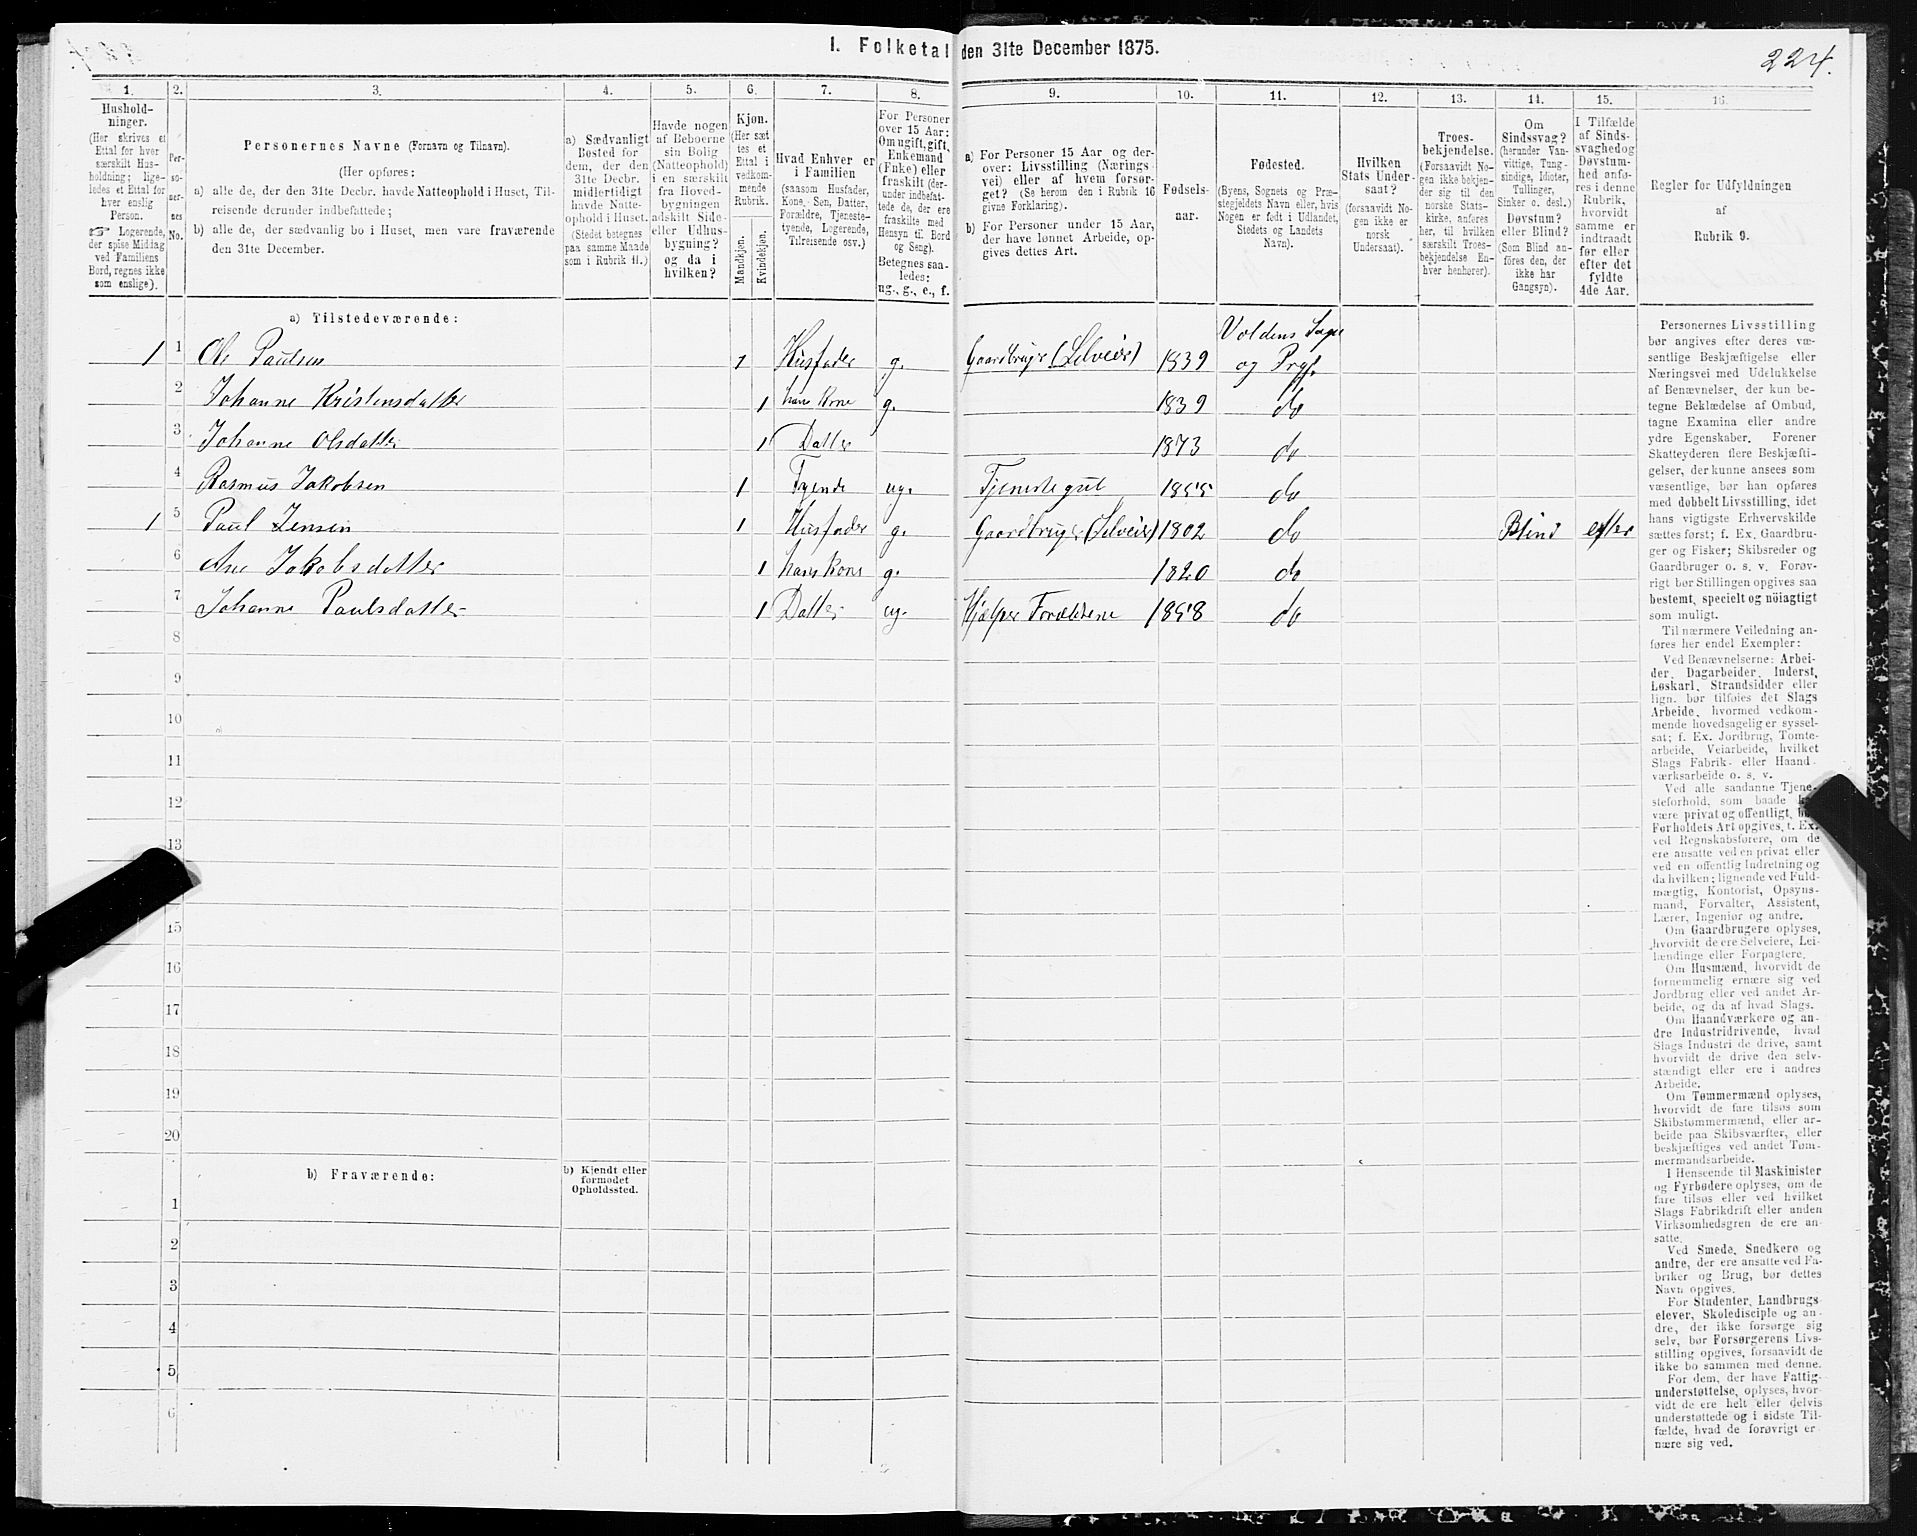 I. Folketal den 31te December 1875.
224.
1.
Hushold-
ninger.
(Her skrives et
Ettal for hver
særskilt Hus-
holdning; lige-
ledes et Ettal for
hver enslig
Person.
☞ Logerende,
der spise Middag
ved Familiens
Bord, regnes ikke
som enslige).
2.
Per-
so-
ner-
nes
No.
3.
Personernes Navne (Fornavn og Tilnavn).
(Her opføres:
a) alle de, der den 31te Decbr. havde Natteophold i Huset, Til-
reisende derunder indbefattede;
b) alle de, der sædvanlig bo i Huset, men vare fraværende
den 31te December.
4.
a) Sædvanligt
Bosted for
dem, der den
31te Decbr.
midlertidigt
havde Natte-
ophold i Huset.
(Stedet betegnes
paa samme Maade
som i Rubrik 11.)
5.
Havde nogen
af Beboerne
sin Bolig
(Natteophold)
i en særskilt
fra Hoved-
bygningen
adskilt Side-
eller Udhus-
bygning?
og da i
hvilken?
6.
Kjøn.
(Her sæt-
tes et
Ettal i
vedkom-
mende
Rubrik.
Mandkjøn.
Kvindekjøn.
7.
Hvad Enhver er
i Familien
(saasom Husfader,
Kone, Søn, Datter,
Forældre, Tjeneste-
tyende, Logerende,
Tilreisende osv.)
8.
For Personer
over 15 Aar:
Om ugift, gift,
Enkemand
(Enke) eller
fraskilt (der-
under indbefat-
tede de, der ere
fraskilte med
Hensyn til Bord
og Seng).
Betegnes saa-
ledes:
ug., g., e., f.
9.
a) For Personer 15 Aar og der-
over: Livsstilling (Nærings-
vei) eller af hvem forsør-
get? (Se herom den i Rubrik 16
givne Forklaring).
b) For Personer under 15 Aar,
der have lønnet Arbeide, op-
gives dettes Art.
10.
Fødsels-
aar.
11.
Fødested.
(Byens, Sognets og Præ-
stegjeldets Navn eller, hvis
Nogen er født i Udlandet,
Stedets og Landets
Navn).
12.
Hvilken
Stats Under-
saat?
(forsaavidt No-
gen ikke er
norsk
Undersaat).
13.
Troes-
bekjendelse.
(Forsaavidt No-
gen ikke bekjen-
der sig til den
norske Stats-
kirke, anføres
her, til hvilken
særskilt Troes-
bekjendelse En-
hver henhører).
14.
Om
Sindssvag?
(herunder Van-
vittige, Tung-
sindige, Idioter,
Tullinger,
Sinker o. desl.)
Døvstum?
eller Blind?
(Som Blind an-
føres den, der
ikke har
Gangsyn).
15.
I Tilfælde
af Sinds-
svaghed og
Døvstum-
hed anfø-
res i denne
Rubrik,
hvorvidt
samme er
indtraadt
før eller
efter det
fyldte
4de Aar.
16.
Regler for Udfyldningen
af
Rubrik 9.
a) Tilstedeværende:
1 1 Ole Paulsen 1 Husfader g. Gaardbruger (Selveier) 1839 Voldens Sogn og Prgj.
2 Johanne Kristensdatter 1 hans Kone g. 1839 do
3 Johanne Olsdatter 1 Datter 1873 do
4 Rasmus Jakobsen 1 Tyende ug. Tjenestegut 1855 do
1 5 Paul Jensen 1 Husfader g. Gaardbruger (Selveier) 1802 do Blind efter
6 Ane Jakobsdatter 1 hans Kone g. 1820 do
7 Johanne Paulsdatter 1 Datter ug. Hjælper Forældrene 1858 do
8
9
10
11
12
13
15
16
17
18
19
20
b) Fraværende:
b) Kjendt eller
formodet
Opholdssted.
1
2
3
4
5
6
Personernes Livsstilling
bør angives efter deres væ-
sentlige Beskjæftigelse eller
Næringsvei med Udelukkelse
af Benævnelser, der kun be-
tegne Beklædelse af Ombud,
tagne Examina eller andre
ydre Egenskaber. Forener
Skatteyderen flere Beskjæfti-
gelser, der kunne ansees som
væsentlige, bør han opføres
med dobbelt Livsstilling, idet
hans vigtigste Erhvervskilde
sættes først; f. Ex. Gaardbru-
ger og Fisker; Skibsreder og
Gaardbruger o. s. v. Forøv-
rigt bør Stillingen opgives saa
bestemt, specielt og nöiagtigt
som muligt.
Til nærmere Veiledning an-
føres her endel Exempler:
Ved Benævnelserne: Arbei-
der, Dagarbeider, Inderst,
Løskarl, Strandsidder eller
lign. bør tilføies det Slags
Arbeide, hvormed vedkom-
mende hovedsagelig er syssel-
sat; f. Ex. Jordbrug, Tomte-
arbeide, Veiarbeide, hvilket
Slags Fabrik- eller Haand-
værksarbeide o. s. v.
Ved alle saadanne Tjene-
steforhold, som baade kan
være privat og offentligt, bør
Forholdets Art opgives, t. Ex.
ved Regnskabsførere, om de
ere ansatte ved en privat eller
ved en offentlig Indretning og
da hvilken; lignende ved Fuld-
mægtig, Kontorist, Opsyns-
mand, Forvalter, Assistent,
Lærer, Ingeniør og andre.
Om Gaardbrugere oplyses,
hvorvidt de ere Selveiere, Lei-
lændinge eller Forpagtere.
Om Husmænd, hvorvidt de
fornemmelig ernære sig ved
Jordbrug eller ved andet Ar-
beide, og da af hvad Slags.
Om Haandværkere og an-
dre Industridrivende, hvad
Slags Industri de drive, samt
hvorvidt de drive den selv-
stændigt eller ere i andres
Arbeide.
Om Tømmermænd oplyses,
hvorvidt de fare tilsøs som
Skibstømmermænd, eller ar-
beide paa Skibsværfter, eller
beskjæftiges ved andet Tøm-
mermandsarbeide.
I Henseende til Maskinister
og Fyrbødere oplyses, om de
fare tilsøs eller ved hvilket
Slags Fabrikdrift eller anden
Virksomhedsgren de ere an-
satte.
Ved Smede, Snedkere og
andre, der ere ansatte ved Fa-
briker og Brug, bør dettes
Navn opgives.
For Studenter, Landbrugs-
elever, Skoledisciple og an-
dre, der ikke forsørge sig
selv, bør Forsørgerens Livs-
stilling opgives, forsaavidt de
ikke bo sammen med denne.
For dem, der have Fattig-
understøttelse, oplyses, hvor-
vidt de ere helt eller delvis
understøttede og i sidste Til-
fælde, hvad de forøvrigt er-
nære sig ved.